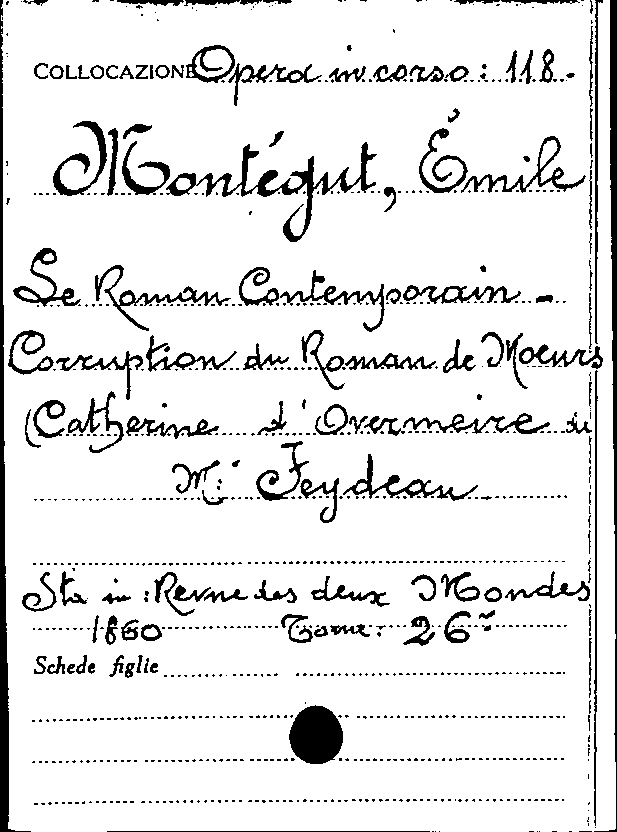 COLLOCAZIONE Opera in corso: 118.
Montégut, Émile
Le Roman Contemporain -
Corruption du Roman de Moeurs
(Catherine d'Overmeire de
M.r Feydeau
Sta in: Revue des deux Mondes
1860 Tome: 26
Schede figlie